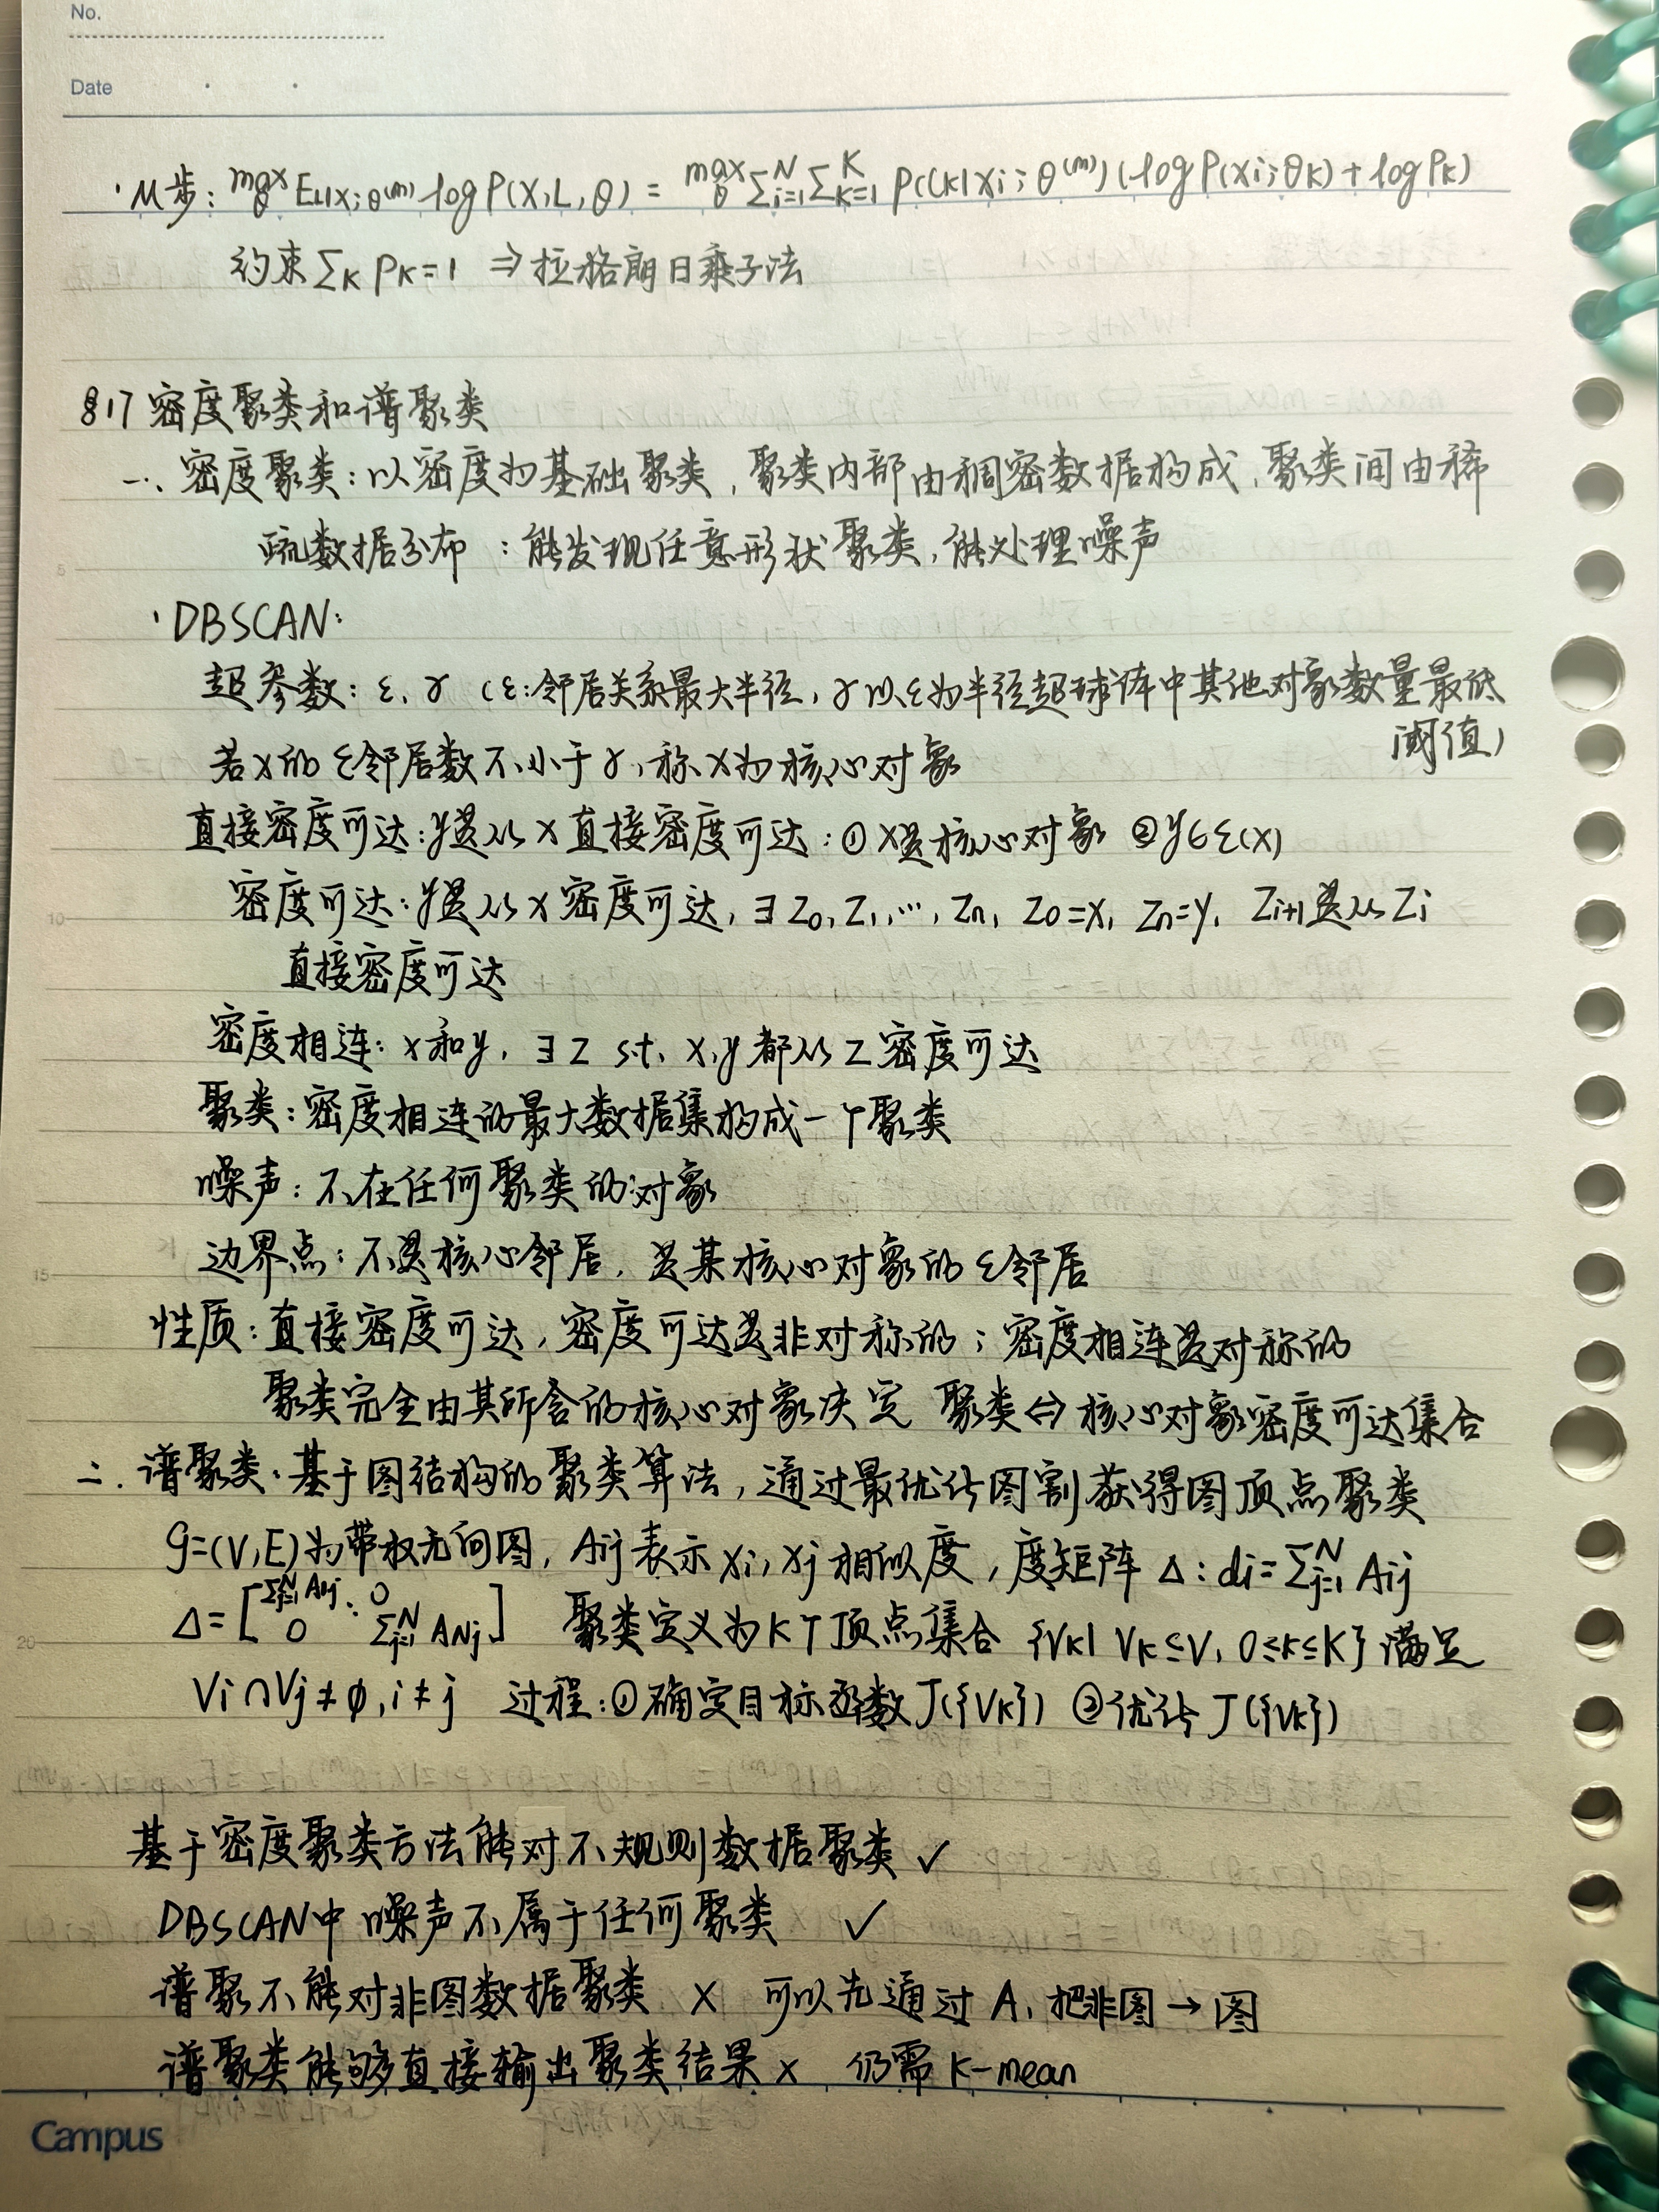 No.
Date
· M步: max_θ E_{L|X;θ^(m)} log P(X,L,θ) = max_θ Σ_{i=1}^N Σ_{k=1}^K P(Ck|Xi;θ^(m)) (log P(Xi;θk) + log Pk)
约束 Σ_k Pk=1 ⇒ 拉格朗日乘子法
§17 密度聚类和谱聚类
一、密度聚类:以密度为基础聚类,聚类内部由稠密数据构成,聚类间由稀
疏数据分布:能发现任意形状聚类,能处理噪声
· DBSCAN:
超参数:ε, γ (ε:邻居关系最大半径, γ以ε为半径超球体中其他对象数量最低
阈值)
若x的ε邻居数不小于γ,称x为核心对象
直接密度可达:y是从x直接密度可达:①x是核心对象 ②y∈ε(x)
密度可达:y是从x密度可达,∃z0,z1,…,zn, z0=x, zn=y, zi+1是从zi
直接密度可达
密度相连:x和y,∃z s.t. x,y都从z密度可达
聚类:密度相连的最大数据集构成一个聚类
噪声:不在任何聚类的对象
边界点:不是核心邻居,是某核心对象的ε邻居
性质:直接密度可达,密度可达是非对称的;密度相连是对称的
聚类完全由其所含的核心对象决定 聚类⇔核心对象密度可达集合
二.谱聚类:基于图结构的聚类算法,通过最优化图割获得图顶点聚类
G=(V,E)为带权无向图,Aij表示xi,xj相似度,度矩阵Δ:di=Σ_{j=1}^N Aij
Δ=[Σ_{j=1}^N A1j ⋱ 0 0 Σ_{j=1}^N ANj] 聚类定义为K个顶点集合{Vk|Vk⊆V, 0≤k≤K}满足
Vi∩Vj≠∅,i≠j 过程:①确定目标函数J({Vk}) ②优化J({Vk})
基于密度聚类方法能对不规则数据聚类 ✓
DBSCAN中噪声不属于任何聚类 ✓
谱聚不能对非图数据聚类 × 可以先通过A,把非图→图
谱聚类能够直接输出聚类结果 × 仍需K-mean
5
10
15
20
Campus